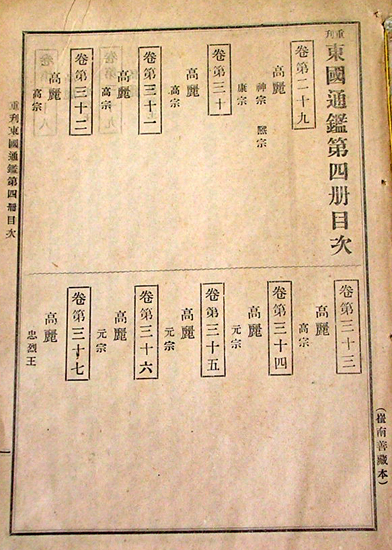 重刊東國通鑑第四册目次
卷第二十九
高麗
神宗 熙宗
康宗
卷第三十
高麗
高宗
卷第三十一
高麗
高宗
卷第三十二
高麗
高宗
卷第三十三
高麗
高宗
卷第三十四
高麗
元宗
卷第三十五
高麗
元宗
卷第三十六
高麗
元宗
卷第三十七
高麗
忠烈王
重刊東國通鑑第四册目次
(崔南善藏本)